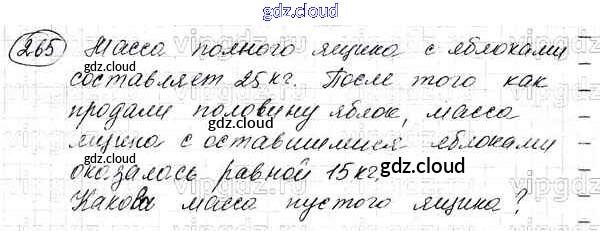 gdz.cloud
265 Масса полного ящика с яблоками
составляет 25 кг. После того как
gdz.cloud
продали половину яблок, масса
gdz.cloud
ящика с оставшимися яблоками
оказалось равной 15 кг.
gdz.cloud
Какова масса пустого ящика?
gdz.cloud